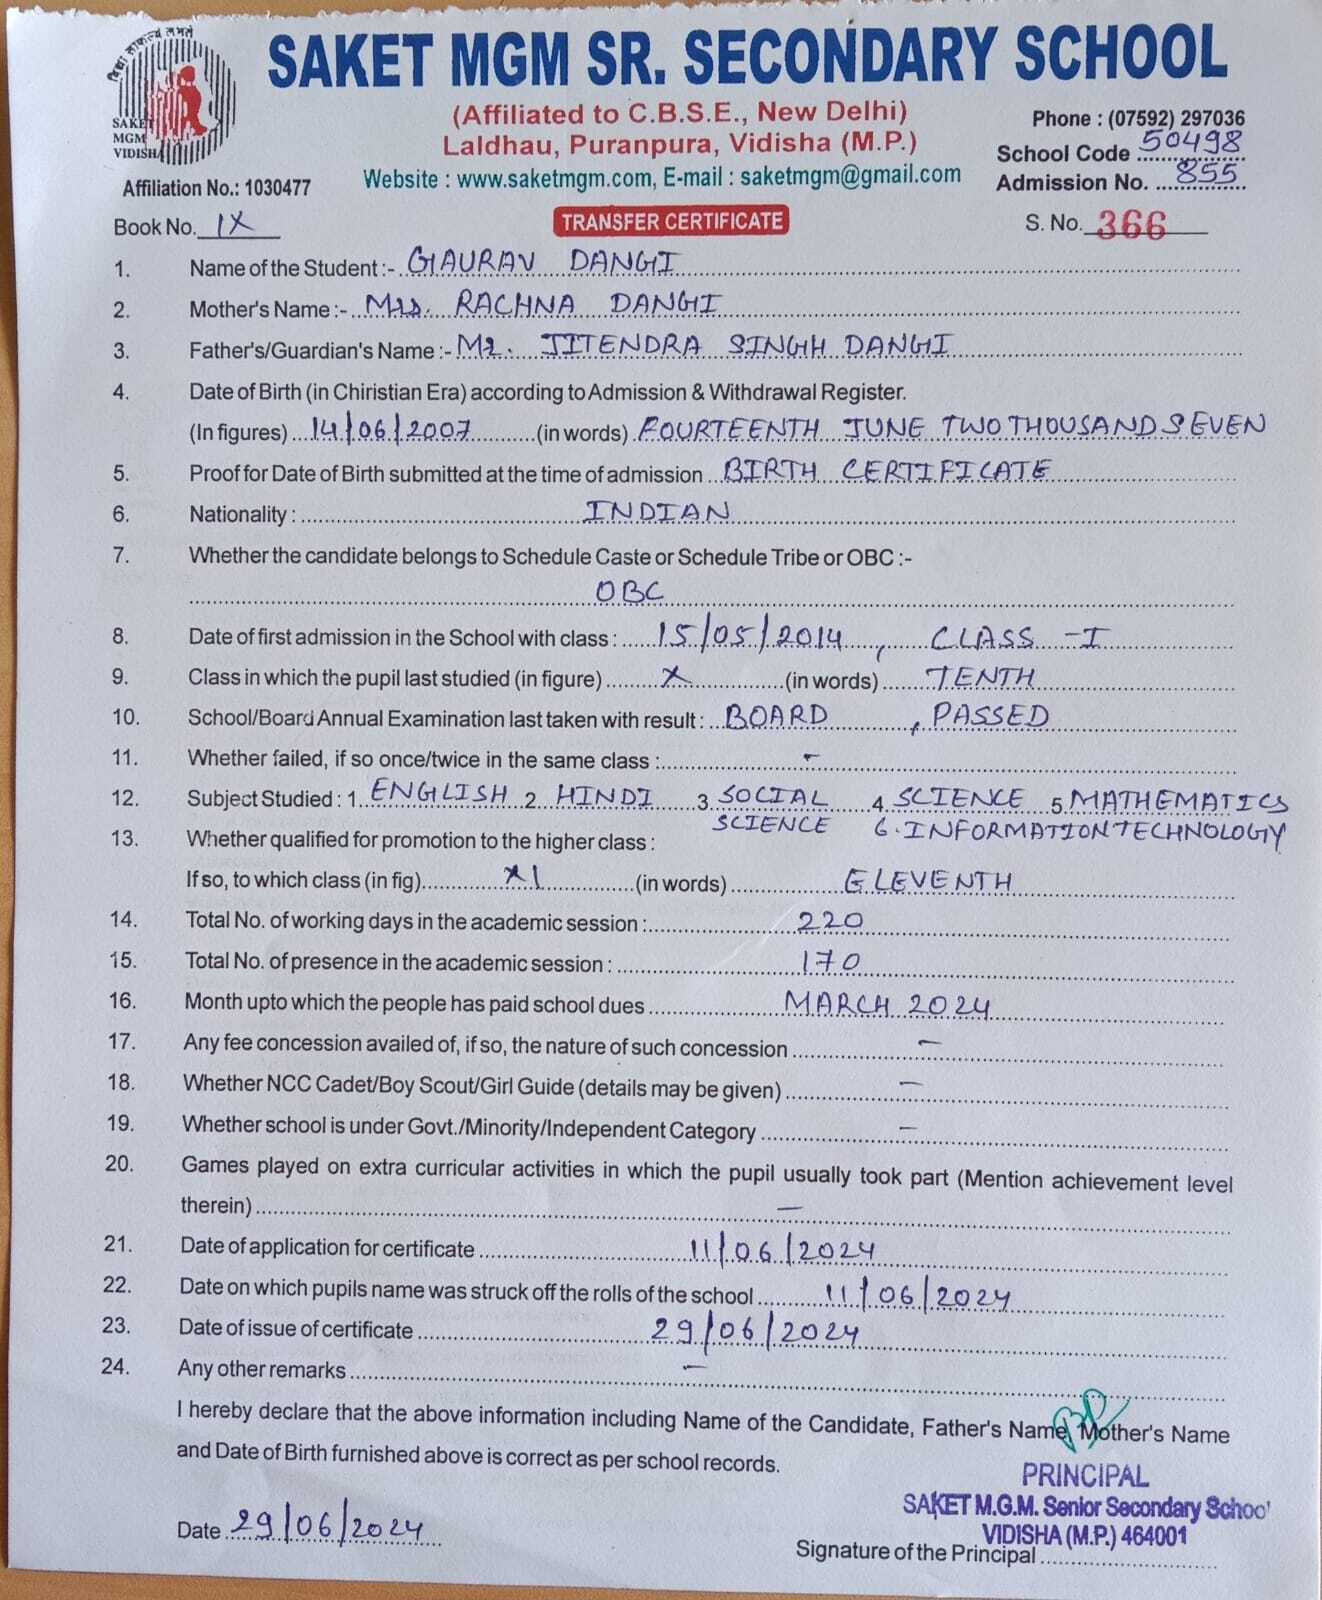 विद्या ताकल्प लभते
SAKET
MGM
VIDISHA
SAKET MGM SR. SECONDARY SCHOOL
(Affiliated to C.B.S.E., New Delhi)
Laldhau, Puranpura, Vidisha (M.P.)
Website : www.saketmgm.com, E-mail : saketmgm@gmail.com
Phone : (07592) 297036
School Code 50498
Admission No. 855
Affiliation No.: 1030477
Book No. IX
TRANSFER CERTIFICATE
S. No. 366
1. Name of the Student :- GAURAV DANGI
2. Mother's Name :- Mrs. RACHNA DANGI
3. Father's/Guardian's Name :- Mr. JITENDRA SINGH DANGI
4. Date of Birth (in Chiristian Era) according to Admission & Withdrawal Register.
(In figures) 14/06/2007 (in words) FOURTEENTH JUNE TWO THOUSAND SEVEN
5. Proof for Date of Birth submitted at the time of admission BIRTH CERTIFICATE
6. Nationality : INDIAN
7. Whether the candidate belongs to Schedule Caste or Schedule Tribe or OBC :-
OBC
8. Date of first admission in the School with class : 15/05/2014, CLASS - I
9. Class in which the pupil last studied (in figure) X (in words) TENTH
10. School/Board Annual Examination last taken with result : BOARD, PASSED
11. Whether failed, if so once/twice in the same class : -
12. Subject Studied : 1. ENGLISH 2 HINDI 3 SOCIAL SCIENCE 4 SCIENCE 5 MATHEMATICS
6. INFORMATION TECHNOLOGY
13. Whether qualified for promotion to the higher class :
If so, to which class (in fig) XI (in words) ELEVENTH
14. Total No. of working days in the academic session : 220
15. Total No. of presence in the academic session : 170
16. Month upto which the people has paid school dues MARCH 2024
17. Any fee concession availed of, if so, the nature of such concession -
18. Whether NCC Cadet/Boy Scout/Girl Guide (details may be given) -
19. Whether school is under Govt./Minority/Independent Category -
20. Games played on extra curricular activities in which the pupil usually took part (Mention achievement level
therein) -
21. Date of application for certificate 11/06/2024
22. Date on which pupils name was struck off the rolls of the school 11/06/2024
23. Date of issue of certificate 29/06/2024
24. Any other remarks -
I hereby declare that the above information including Name of the Candidate, Father's Name, Mother's Name
and Date of Birth furnished above is correct as per school records.
PRINCIPAL
SAKET M.G.M. Senior Secondary School
VIDISHA (M.P.) 464001
Date 29/06/2024
Signature of the Principal